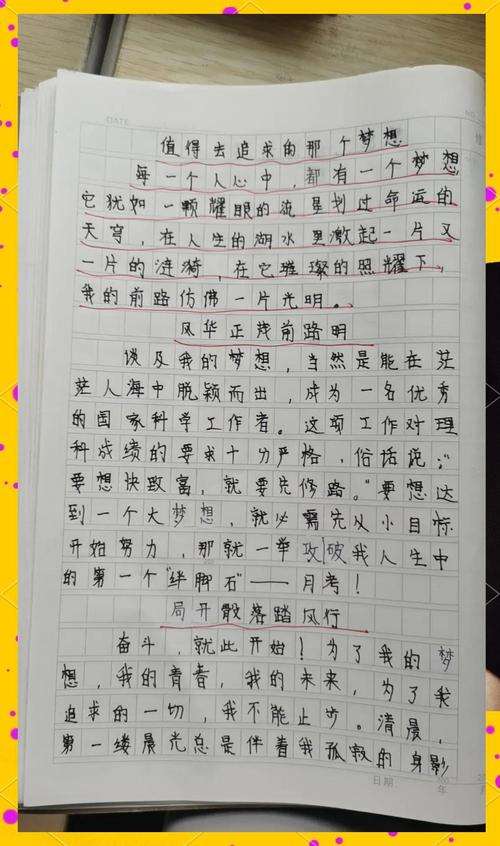 DATE
NO.
值得去追求的那个梦想
每一个人心中，都有一个梦想
它犹如一颗耀眼的流星划过命运的
天穹，在人生的湖水里激起一片又
一片的涟漪，在它璀璨的照耀下，
我的前路仿佛一片光明。
风华正茂前路明
谈及我的梦想，当然是能在茫
茫人海中脱颖而出，成为一名优秀
的国家科学工作者。这项工作对理
科成绩的要求十分严格，俗话说：“
要想快致富，就要先修路。”要想达
到一个大梦想，就必需先从小目标
开始努力，那就一举攻破我人生中
的第一个“绊脚石”——月考！
局开散落踏风行
奋斗，就此开始！为了我的梦
想，我的青春，我的未来，为了我
追求的一切，我不能止步。清晨，
第一缕晨光总是伴着我孤寂的身影
日期 年 月